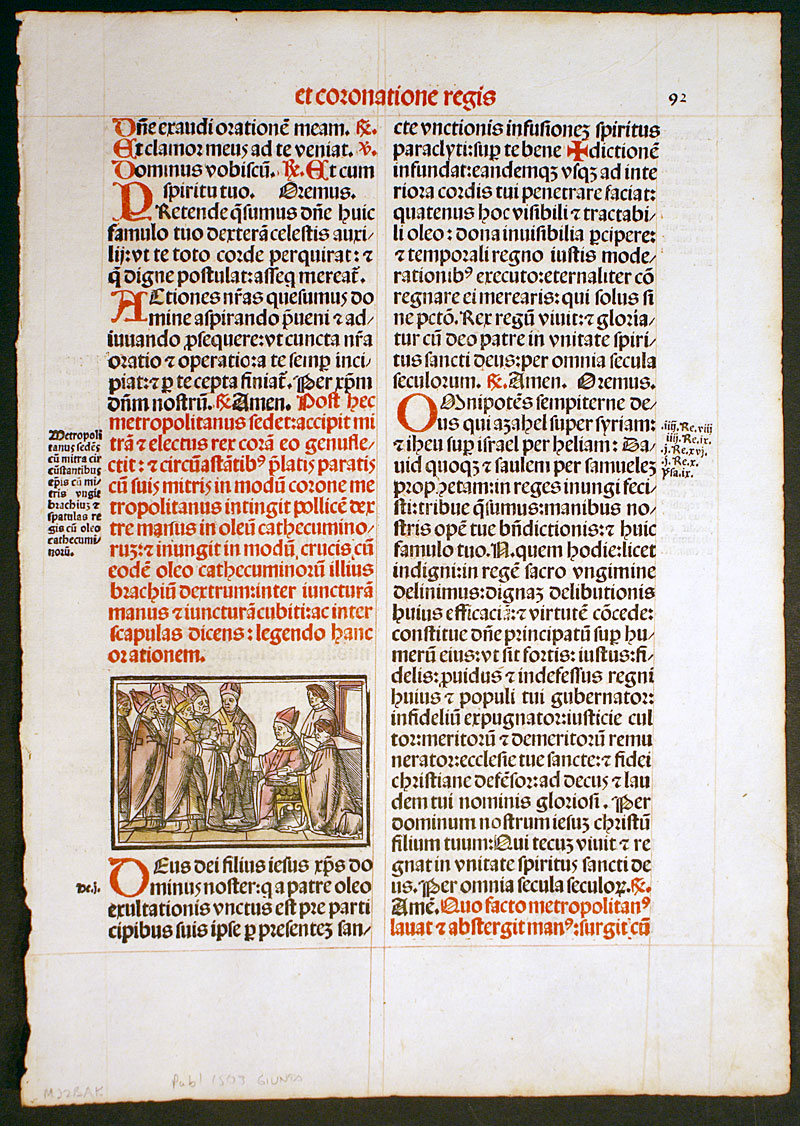 et coronatione regis
92
Dñe exaudi orationē meam. ℟.
Et clamor meus ad te veniat. ℣.
Dominus vobiscū. ℟. Et cum
spiritu tuo. Oremus.
PRetende q̄sumus dñe huic
famulo tuo dexterā celestis auxi/
lij: vt te toto corde perquirat: ⁊
q̄ digne postulat: asseq̄ mereat̄.
ACtiones nr̄as quesumus do
mine aspirando p̄ueni ⁊ ad/
iuuando ꝓsequere: vt cuncta nr̄a
oratio ⁊ operatio: a te semꝑ inci/
piat: ⁊ ꝑ te cepta finiat̄. Per xp̄m
dñm nostrū. ℟. Amen. Post hec
metropolitanus sedet: accipit mi
trā ⁊ electus rex corā eo genufle/
ctit: ⁊ circūastātibꝰ p̄latis paratis
cū suis mitris in modū corone me
tropolitanus intingit pollicē dex
tre manus in oleū cathecumino/
ruꝫ: ⁊ inungit in modū crucis cū
eodē oleo cathecuminorū illius
brachiū dextrum: inter iuncturā
manus ⁊ iuncturā cubiti: ac inter
scapulas dicens: legendo hanc
orationem.
Metropoli
tanus sedēs
cū mitra cir
cūstantibus
ep̄is cū mi/
tris vngit
brachiuꝫ ⁊
spatulas re
gis cū oleo
cathecumi/
norū.
DEus dei filius iesus xp̄s do
minus noster: q a patre oleo
exultationis vnctus est pre parti
cipibus suis ipse ꝑ presenteꝫ san/
cte vnctionis infusioneꝫ spiritus
paraclyti: suꝑ te bene ✠ dictionē
infundat: eandemqꝫ vsqꝫ ad inte
riora cordis tui penetrare faciat:
quatenus hoc visibili ⁊ tractabi/
li oleo: dona inuisibilia ꝑcipere:
⁊ temporali regno iustis mode/
rationibꝰ executo: eternaliter cō
regnare ei merearis: qui solus si
ne pctō. Rex regū viuit: ⁊ gloria/
tur cū deo patre in vnitate spiri/
tus sancti deus: per omnia secula
seculorum. ℟. Amen. Oremus.
OMnipotēs sempiterne de/
us qui azahel super syriam:
⁊ iheu suꝑ israel per heliam: Da/
uid quoqꝫ ⁊ saulem per samueleꝫ
prophetam: in reges inungi feci/
sti: tribue q̄sumus: manibus no/
stris opē tue bn̄dictionis: ⁊ huic
famulo tuo. N. quem hodie: licet
indigni: in regē sacro vngimine
delinimus: dignaꝫ delibutionis
huius efficaciā: ⁊ virtutē cōcede:
constitue dñe principatū suꝑ hu/
merū eius: vt sit fortis: iustus: fi/
delis: ꝓuidus ⁊ indefessus regni
huius ⁊ populi tui gubernator:
infideliū expugnator: iusticie cul
tor: meritorū ⁊ demeritorū remu
nerator: ecclesie tue sancte: ⁊ fidei
christiane defēsor: ad decus ⁊ lau
dem tui nominis gloriosi. Per
dominum nostrum iesuꝫ christū
filium tuum: Qui tecuꝫ viuit ⁊ re
gnat in vnitate spiritus sancti de
us. Per omnia secula seculoꝝ. ℟.
Amē. Quo facto metropolitanꝰ
lauat ⁊ abstergit manꝰ: surgit cū
.iiij. Re. viii
iiij. Re. ix.
.j. Re. xvj.
.j. Re. x.
Psa. ix.
M32BAK
Publ 1503 GIUNTA